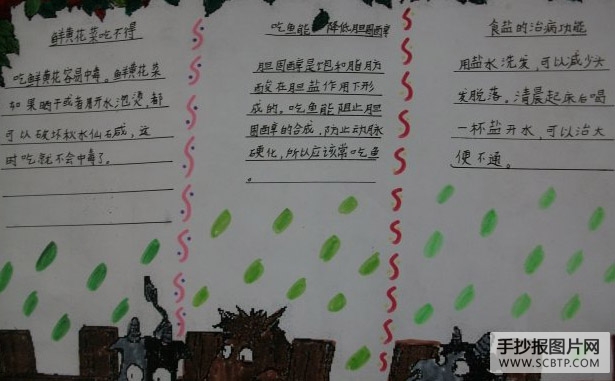 鲜黄花菜吃不得
吃鲜黄花容易中毒。鲜黄花菜
如果晒干或者用开水泡烫,都
可以破坏秋水仙碱,这
时吃就不会中毒了。
吃鱼能降低胆固醇
胆固醇是饱和脂肪
酸在胆盐作用下形
成的。吃鱼能阻止胆
固醇的合成,防止动脉
硬化,所以应该常吃鱼
。
食盐的治病功能
用盐水洗发,可以减少头
发脱落。清晨起床后喝
一杯盐开水,可以治大
便不通。
手抄报图片网
WWW.SCBTP.COM